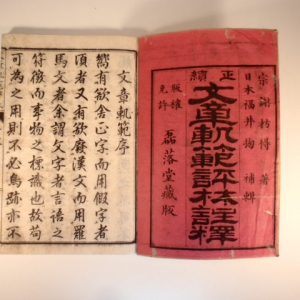 正續
宋謝枋得 著
日本福井 補輯
文章軌範評林註釋
版權免許
磊落堂藏版
文章軌範序
嚮有欲舍正字而用假字者
頃者又有欲廢漢文而用羅
馬文者余謂文字者言語之
符徴而事物之標識也故苟
可為之用則不必鳥跡亦不